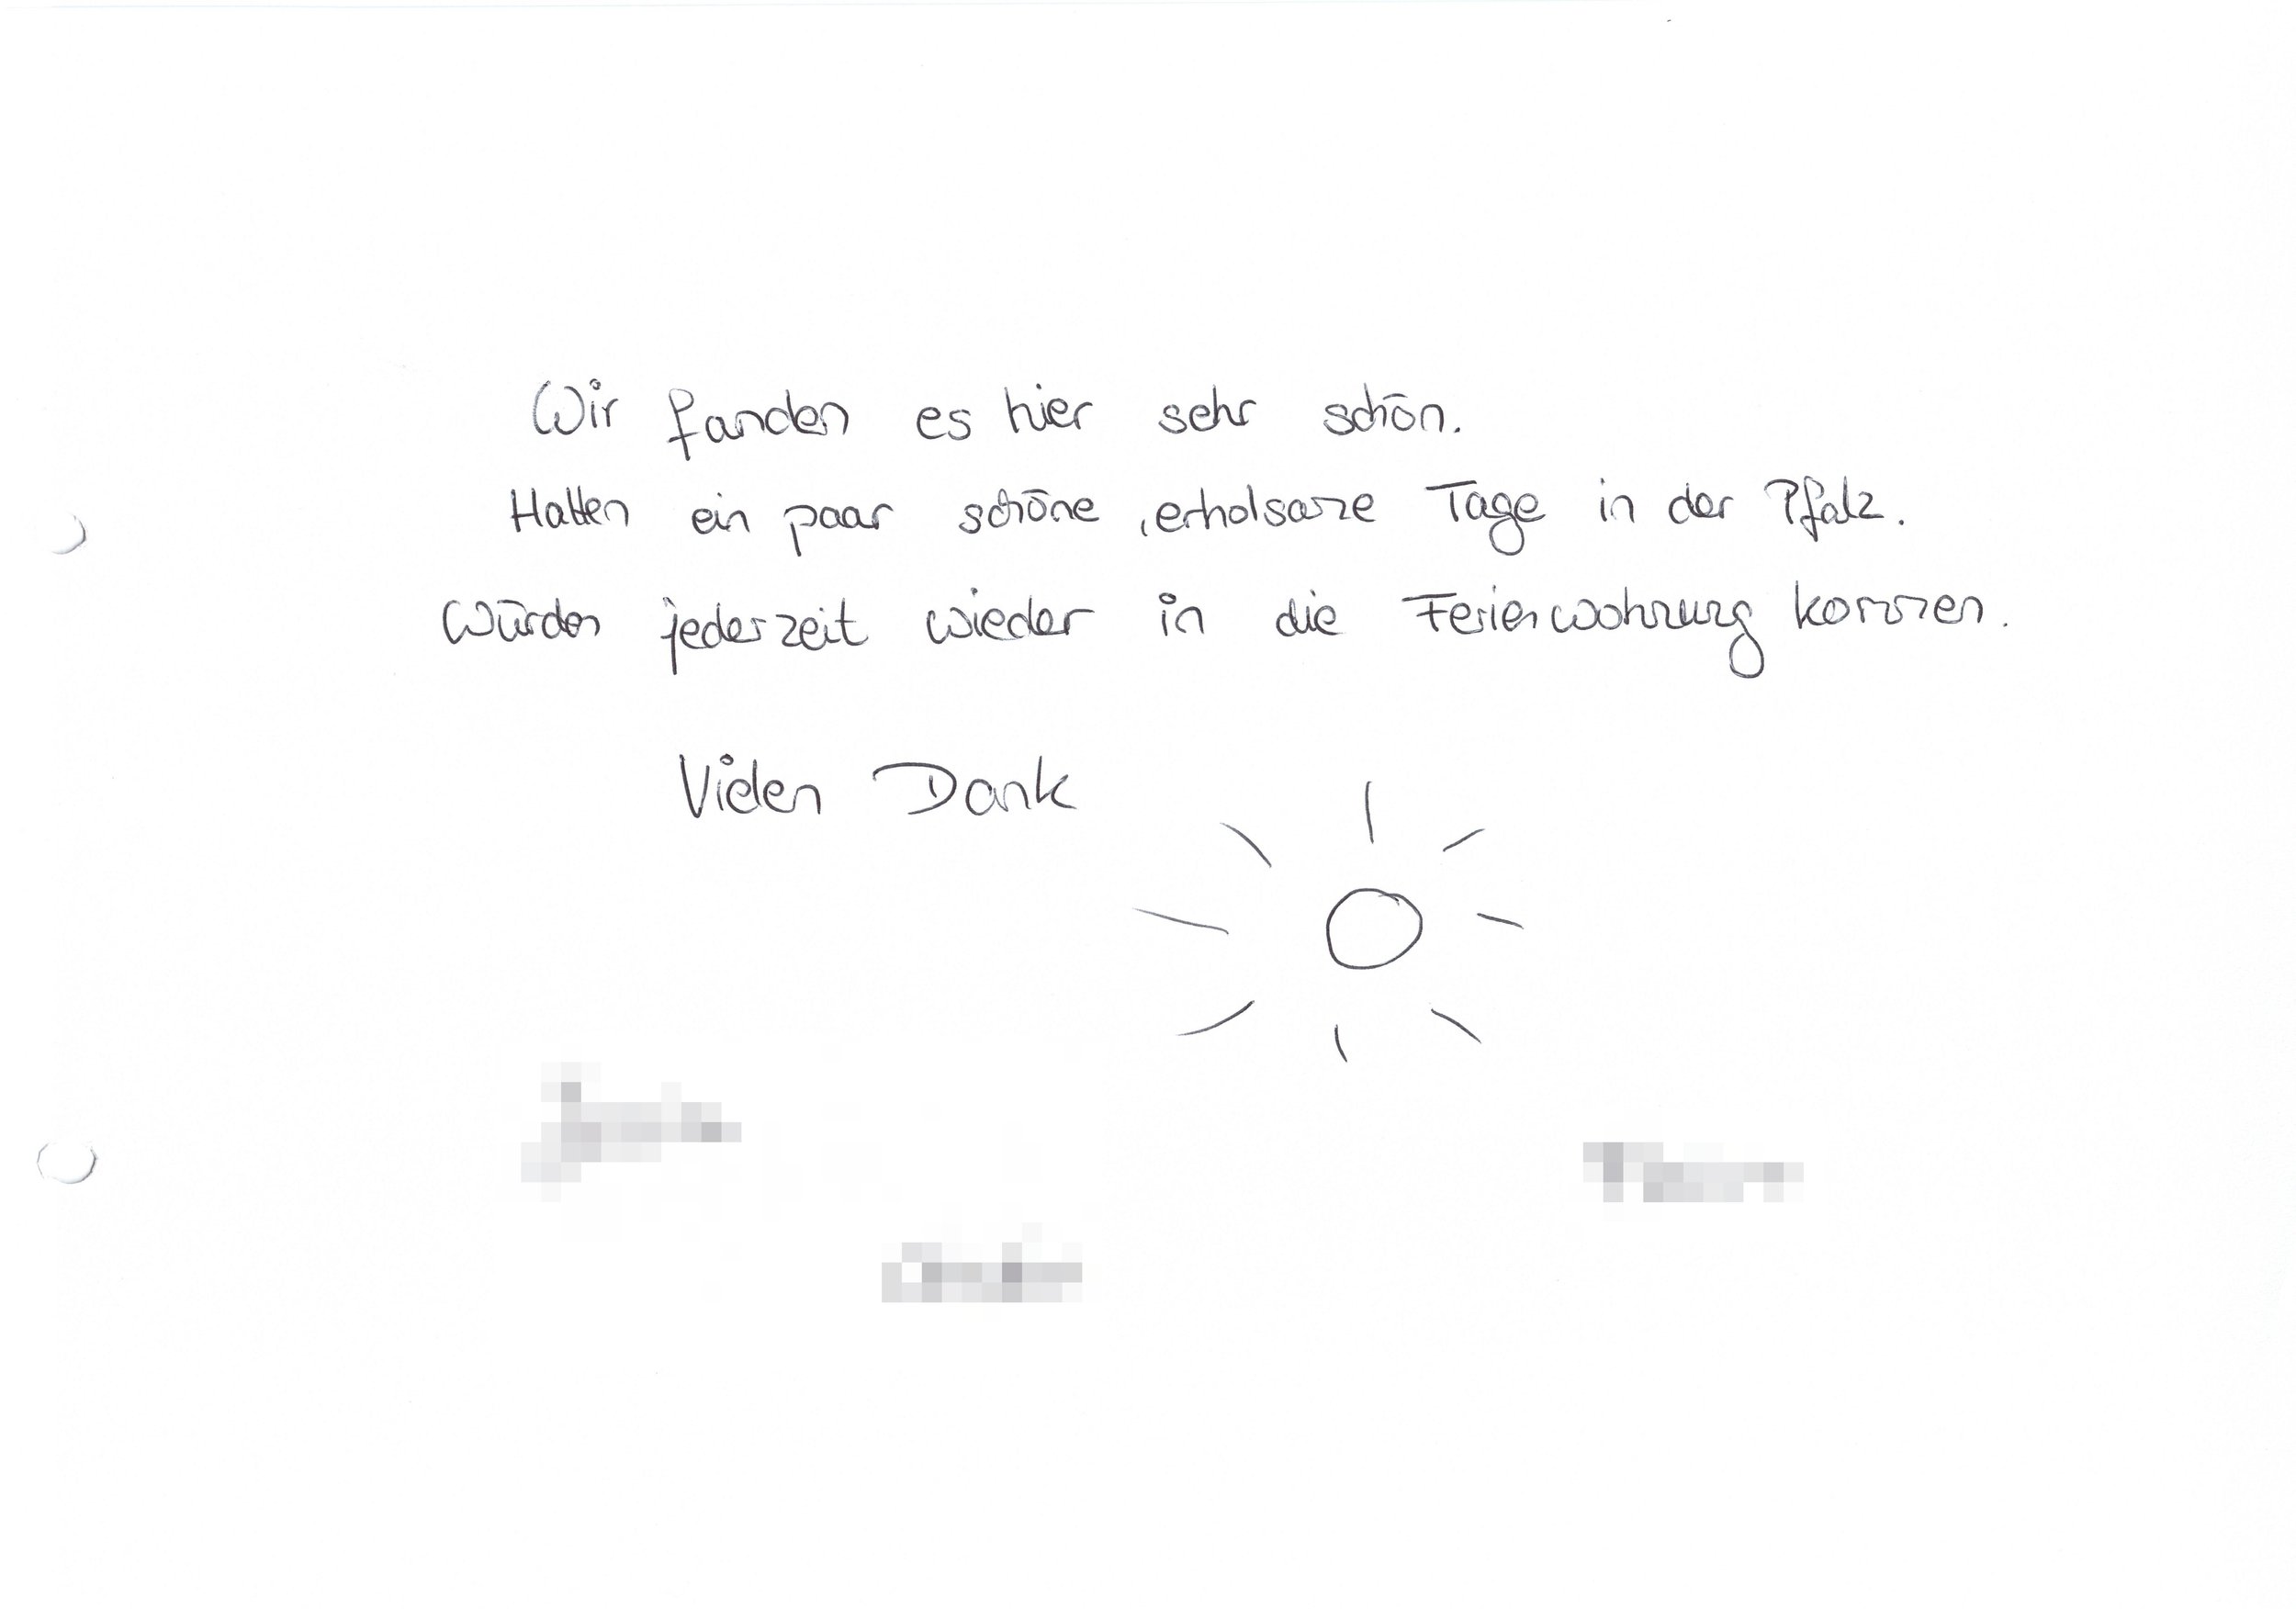 Wir fanden es hier sehr schön.
Hatten ein paar schöne, erholsame Tage in der Pfalz.
Würden jederzeit wieder in die Ferienwohnung kommen.
Vielen Dank